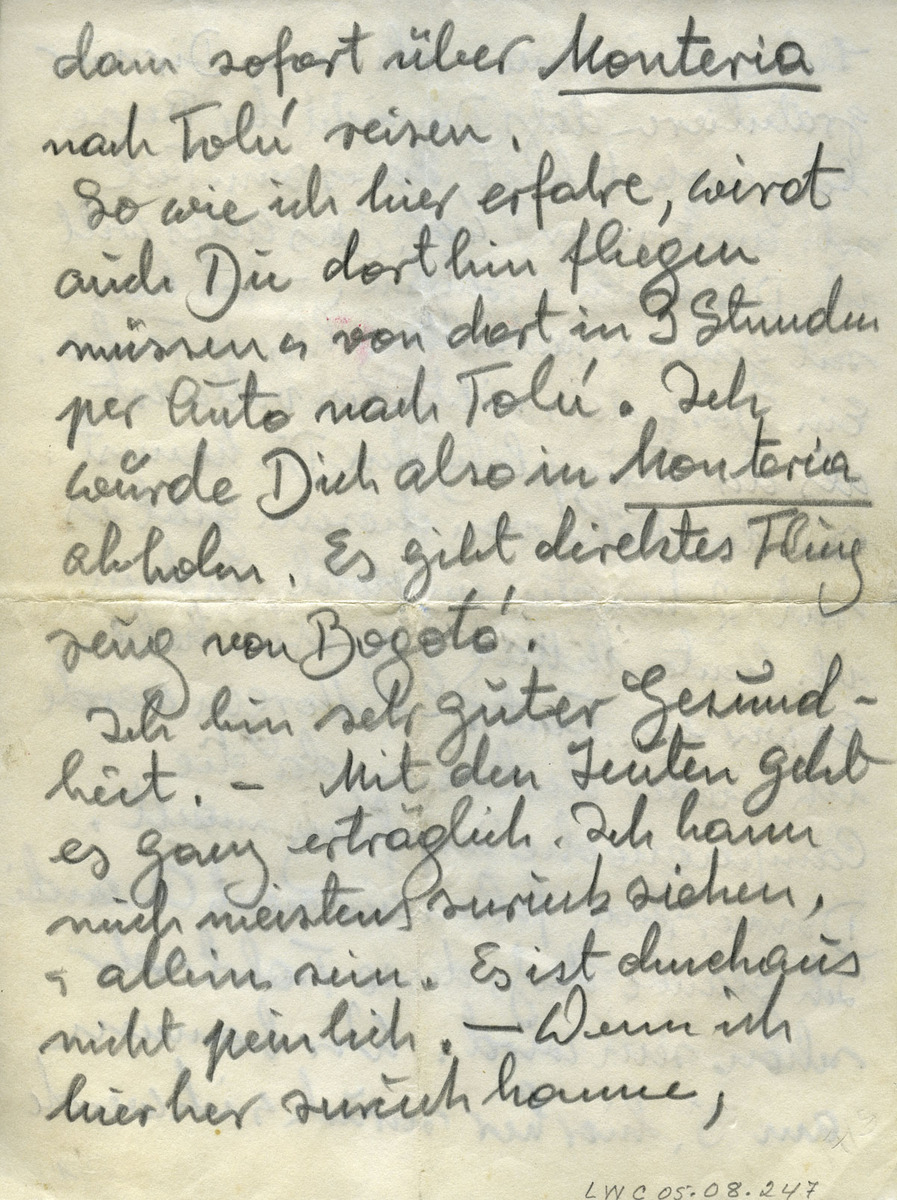 dann sofort über Monteria
nach Tolú reisen.
So wie ich hier erfahre, wirst
auch Du dorthin fliegen
müssen u von dort in 3 Stunden
per Auto nach Tolú. Ich
würde Dich also in Monteria
abholen. Es gibt direktes Flug
zeug von Bogotá.
Ich bin sehr guter Gesund-
heit. – Mit den Leuten geht
es ganz erträglich. Ich kann
mich meistens zurück ziehen,
u allein sein. Es ist durchaus
nicht peinlich. – Wenn ich
hierher zurück komme,
LWC 05.08.247